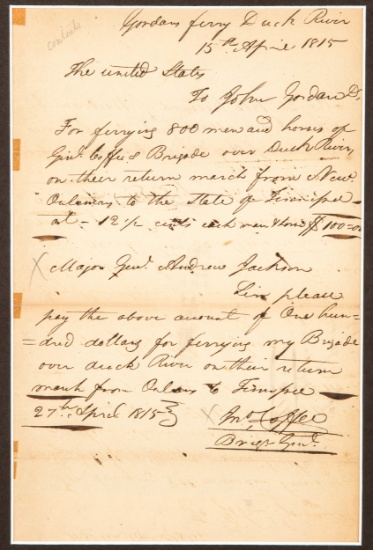 Gordans ferry Duck River
15th April 1815
The united States
To John Gordan Dr,
For ferrying 800 men and horses of
Genl. Coffees Brigade over Duck River,
on their return march from New
Orleans to the State of Tennessee
at - 12 1/2 cents each man & horse $100=00
X Major Genl. Andrew Jackson
Sir, please
pay the above amount of One hun-
=dred dollars for ferrying my Brigade
over duck River on their return
march from Orleans to Tennessee
27th April 1815
X Jno. Coffee
Brigr Genl.